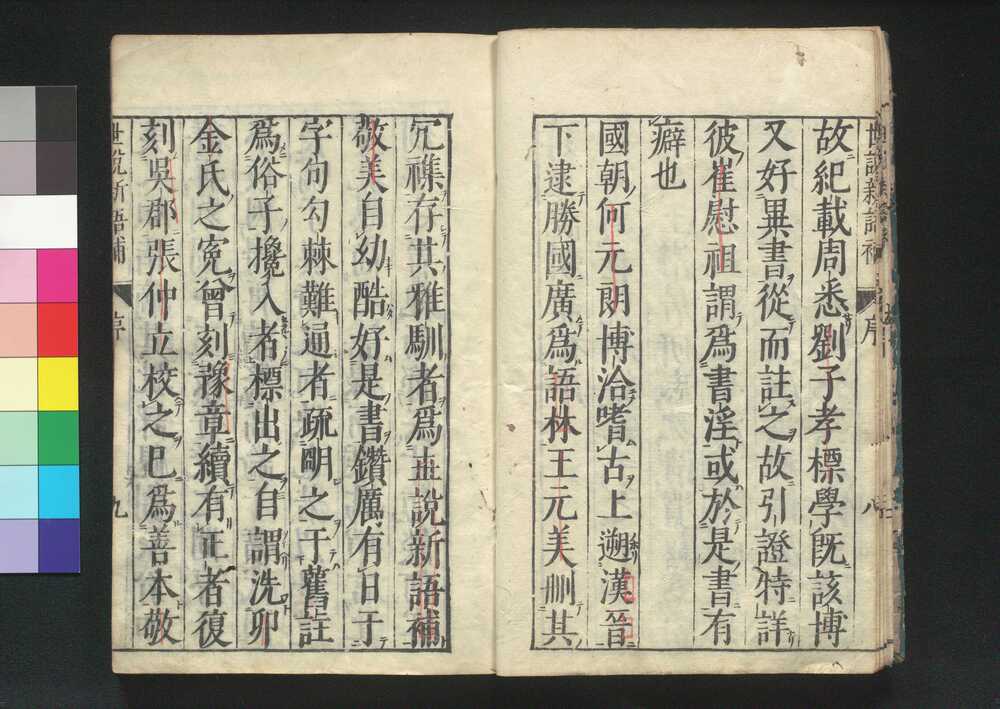 世說新語補 序 八
故紀載周悉劉子孝標學旣該博
又好異書從而註之故引證特詳
彼崔慰祖謂爲書淫或於是書有
癖也
國朝何元朗博洽嗜古上遡漢晉
下逮勝國廣爲語林王元美刪其
冗襍存其雅馴者爲世說新語補
敬美自幼酷好是書鑽厲有日于
字句勾棘難通者疏明之于舊註
爲俗子攙入者標出之自謂洗卯
金氏之寃曾刻豫章續有正者復
刻吳郡張仲立校之已爲善本敬
世說新語補 序 九